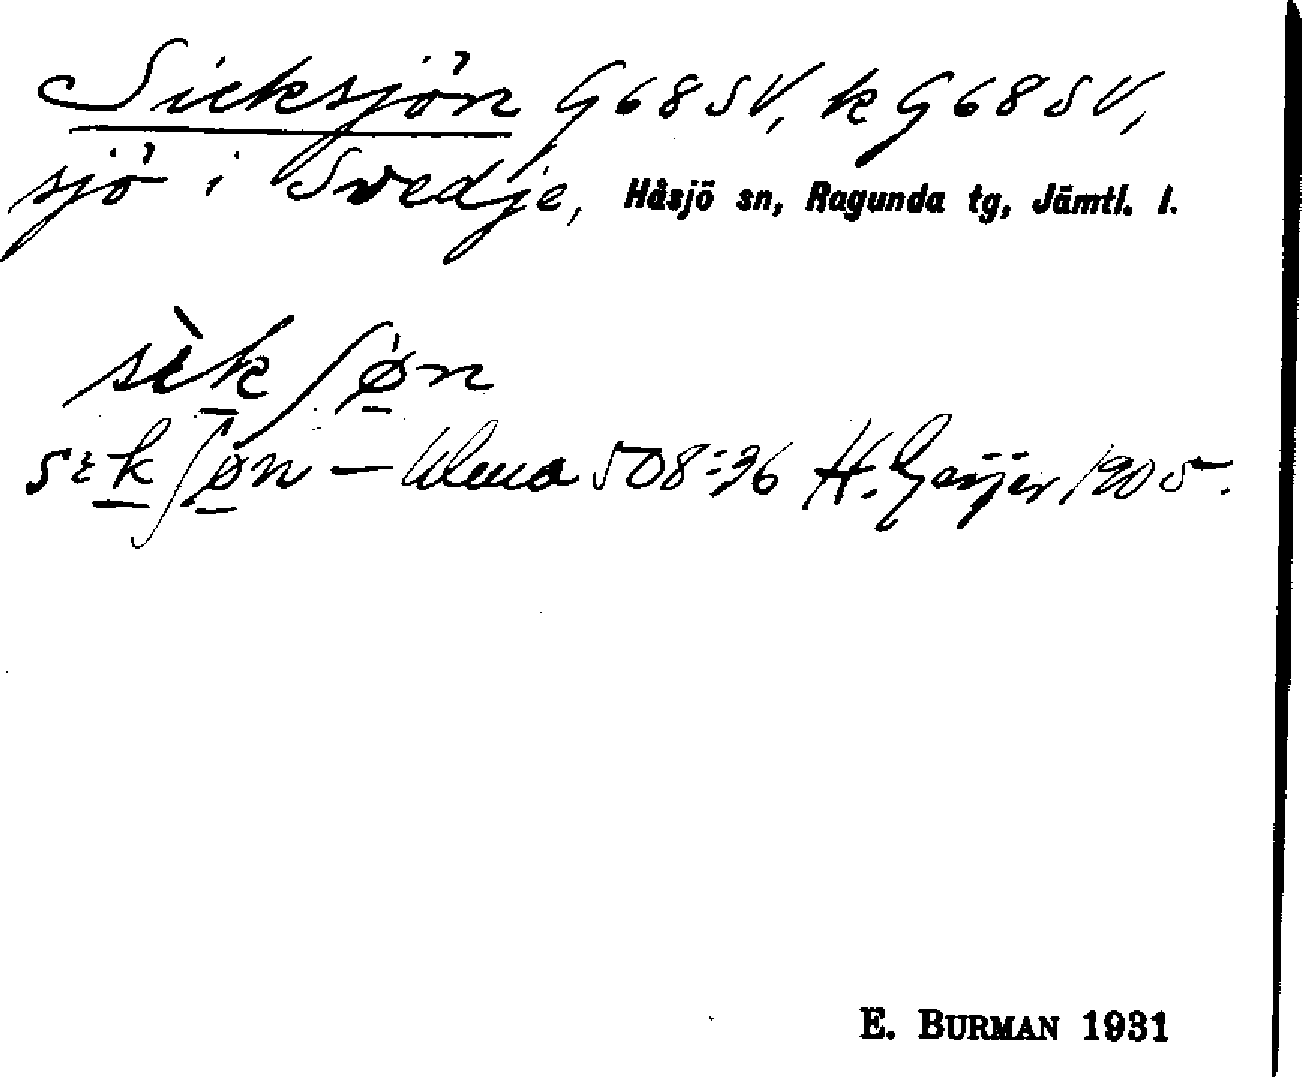 Sicksjön G 68 SV, k G 68 SV,
sjö i Svedje, Håsjö sn, Ragunda tg, Jämtl. l.
sèkʃøn
sɛkʃøn – Ulma 508:36 H. Geijer 1905.
E. BURMAN 1931